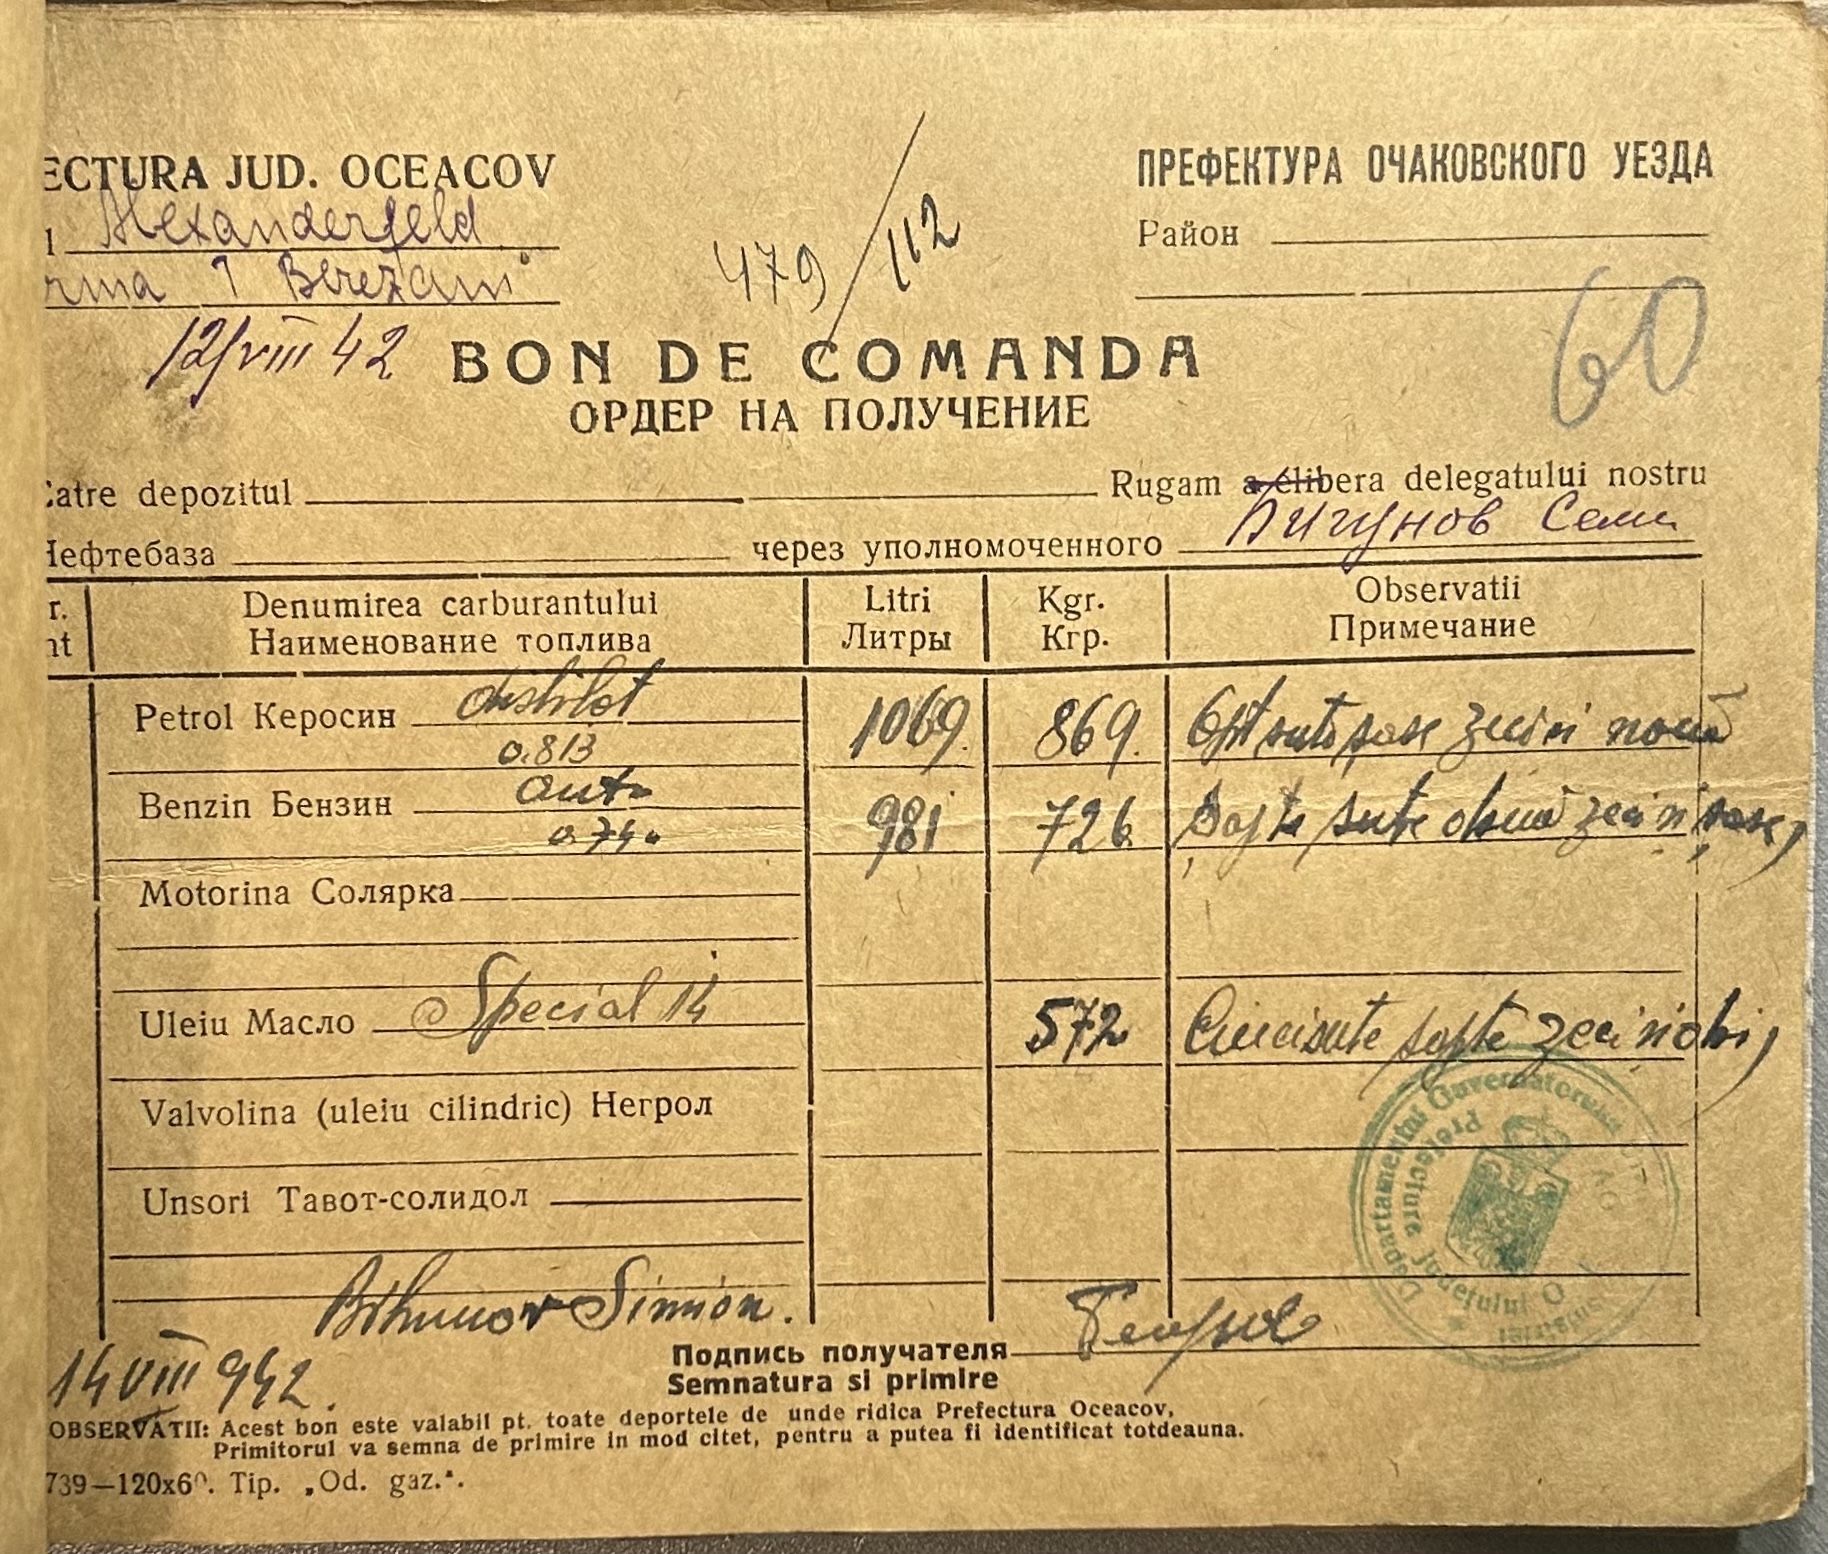 ECTURA JUD. OCEACOV
ПРЕФЕКТУРА ОЧАКОВСКОГО УЕЗДА
Alexanderfeld
479/112
Район
rma I Berezani
60
12/VIII 42
BON DE COMANDA
ОРДЕР НА ПОЛУЧЕНИЕ
Catre depozitul Rugam a elibera delegatului nostru
Нефтебаза через уполномоченного Бигунов Семи
r. Denumirea carburantului Litri Kgr. Observatii
nt Наименование топлива Литры Кгр. Примечание
Petrol Керосин distilat 1069. 869. Opt sute șase zeci si nouă
0.813
Benzin Бензин auto 981 726 Șapte sute două zeci si șase,
0.740
Motorina Солярка
Uleiu Масло Special 14 572 Cincisute șapte zeci si doi,
Valvolina (uleiu cilindric) Негрол
Unsori Тавот-солидол
Departamentul Guvernatorului
Prefecture Județului O
Bihunov Simion.
Подпись получателя
14 VIII 942.
Semnatura si primire
OBSERVATII: Acest bon este valabil pt. toate deportele de unde ridica Prefectura Oceacov,
Primitorul va semna de primire in mod citet, pentru a putea fi identificat totdeauna.
739—120x60. Tip. „Od. gaz.".